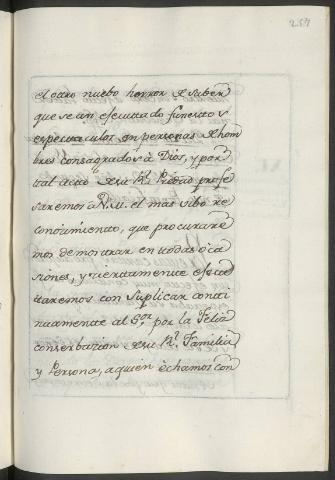 257
el otro nuebo horror de saber
que sean efecuttado funestos
expectaculos en personas de hom
bres consagrados à Dios, y por
tal acto de su Rl. Piedad profe
saremos a V.M. el mas vibo re
conocimiento, que procurare
mos demostrar en todas oca
siones, y rebentemente efec
ttaremos con suplicar conti
nuamente al Sor. por la Feliz
conserbazion de su Rl. Familia
y Persona, a quien èchamos con